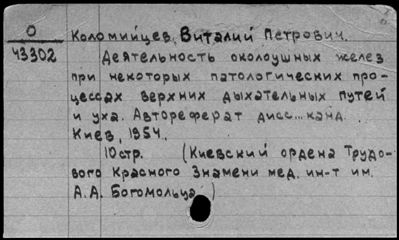 О
43302
Коломийцев, Виталий Петрович.
Деятельность околоушных желез
при некоторых патологических про-
цессах верхних дыхательных путей
и уха. Автореферат дисс... канд.
Киев, 1954.
10стр. (Киевский ордена Трудо-
вого Красного Знамени мед. ин-т им.
А.А. Богомольца)